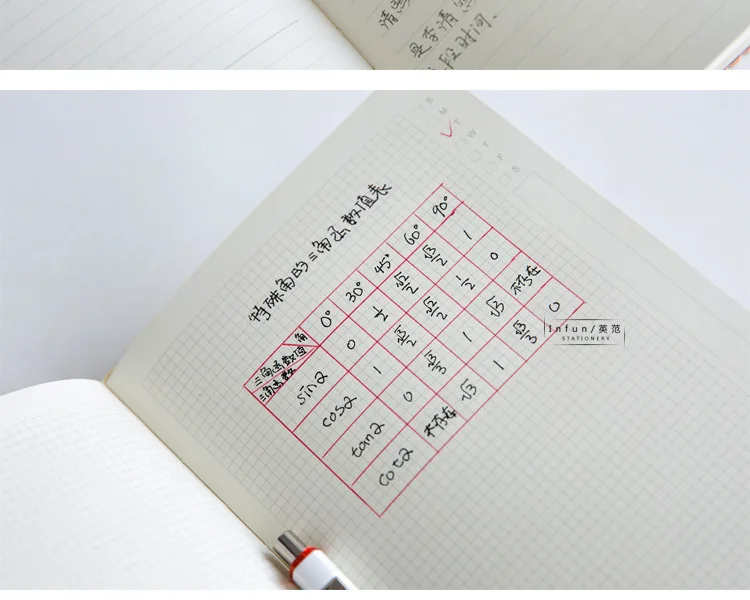 清照
是李清照
段时间.
S
M
T
W
T
F
S
特殊角的三角函数值表
角
三角函数值
三角函数
0° 30° 45° 60° 90°
sinα 0 1/2 √2/2 √3/2 1
cosα 1 √3/2 √2/2 1/2 0
tanα 0 √3/3 1 √3 不存在
cotα 不存在 √3 1 √3/3 0
Infun/英范
STATIONERY